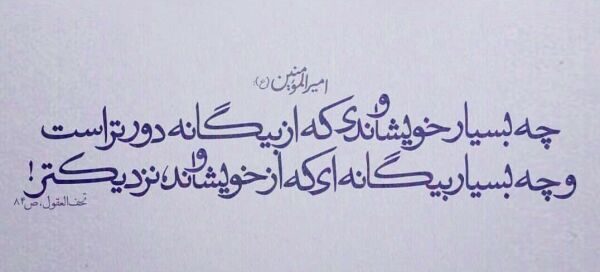 امیرالمؤمنین (ع):
چه بسیار خویشاوندی که از بیگانه دورتر است
و چه بسیار بیگانه ای که از خویشاوند، نزدیکتر!
تحف العقول، ص ۸۴